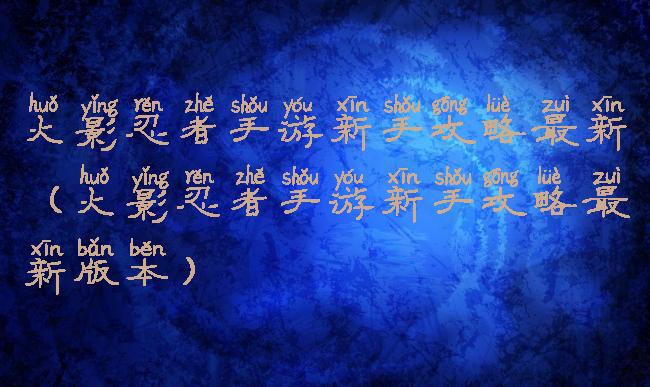 huǒ yǐng rěn zhě shǒu yóu xīn shǒu gōng lüè zuì xīn
火影忍者手游新手攻略最新
huǒ yǐng rěn zhě shǒu yóu xīn shǒu gōng lüè zuì
（火影忍者手游新手攻略最
xīn bǎn běn
新版本）